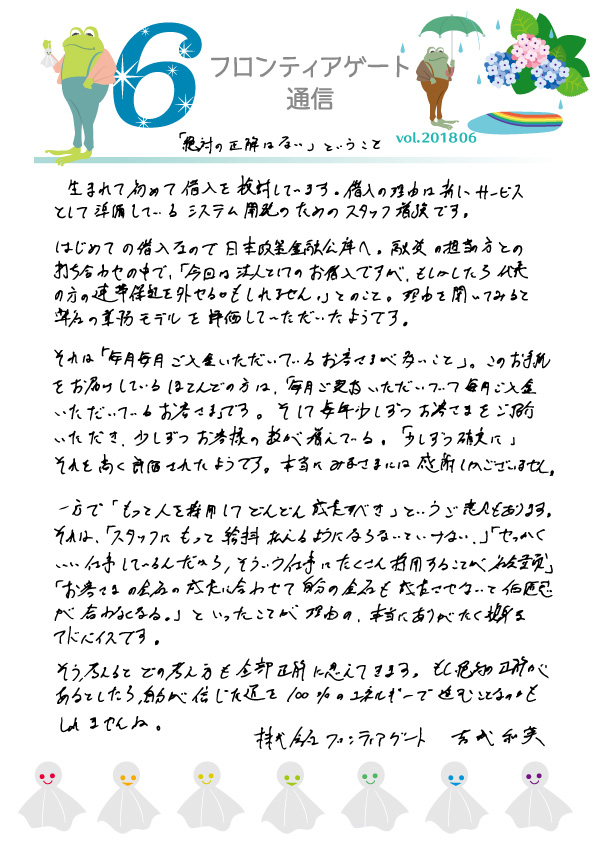 6
フロンティアゲート
通信
vol.201806
「絶対の正解はない」ということ
生まれて初めて借入を検討しています。借入の理由は新しいサービス
として準備しているシステム開発のためのスタッフ増強です。
はじめての借入なので日本政策金融公庫へ。融資の担当の方との
打ち合わせの中で、「今回は法人としてのお借入ですが、もしかしたら代表
の方の連帯保証を外せるかもしれません。」とのこと。理由を聞いてみると
弊社の業務モデルを評価していただいたようです。
それは「毎月毎月ご入金いただいているお客さまが多いこと」。このお手紙
をお届けしているほとんどの方は、「毎月ご契約いただいていて毎月ご入金
いただいているお客さま」です。そして毎年少しずつお客さまをご紹介
いただき、少しずつお客様の数が増えている。「少しずつ確実に」
それを高く評価されたようです。本当にみなさまには感謝しかございません。
一方で「もっと人を採用してどんどん成長すべき」というご意見もあります。
それは、「スタッフにもっと給料払えるようにならないといけない。」「せっかく
いい仕事しているんだから、そういう仕事にたくさん採用することが社会貢献」
「お客さまの会社の成長に合わせて自分の会社も成長させないと価値観
が合わなくなる。」といったことが理由の、本当にありがたく
アドバイスです。
そう考えるとどの考え方も全部正解に思えてきます。もし絶対の正解が
あるとしたら、自分が信じた道を100%のエネルギーで進むことなのかも
しれませんね。
株式会社フロンティアゲート 吉武